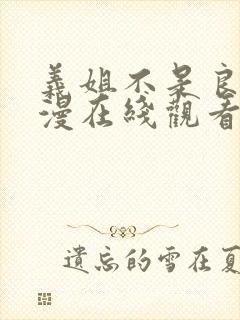 義姐不呆良
漫在綫觀看
遺忘的雪在夏